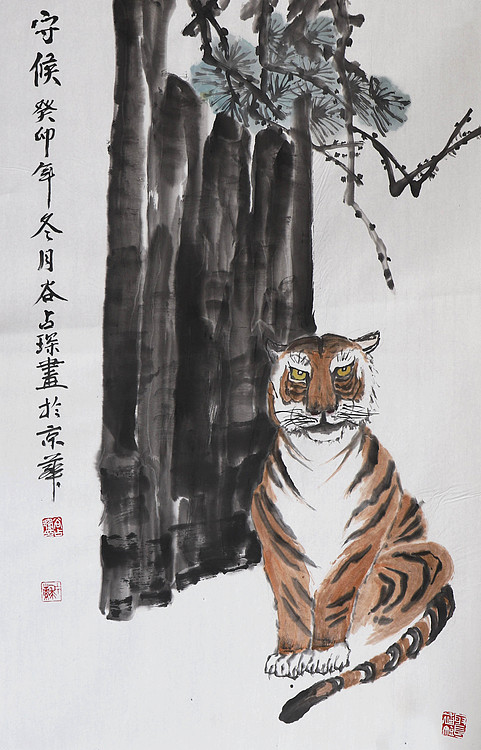 守候癸卯年冬月谷占琛畫於京華